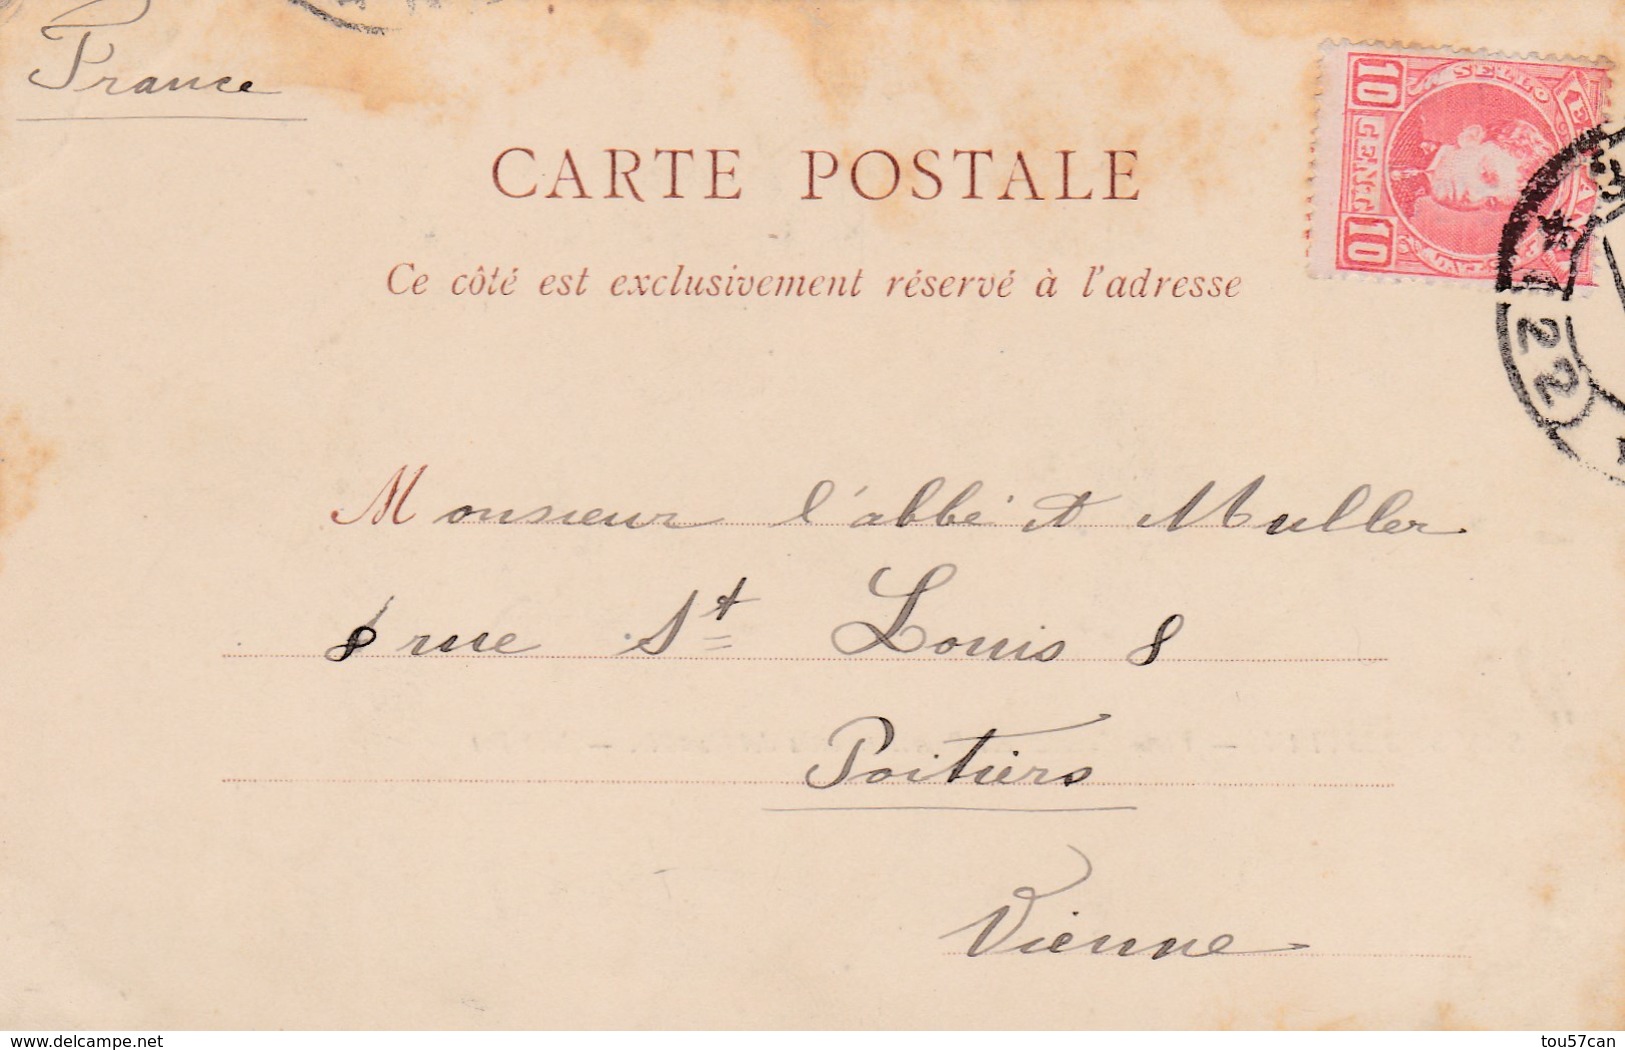 France
CARTE POSTALE
Ce côté est exclusivement réservé à l'adresse
10 CENT 10
SELLO
Monsieur l'abbé A Muller
8 rue St Louis 8
Poitiers
Vienne
22
delcampe.net
tou57can